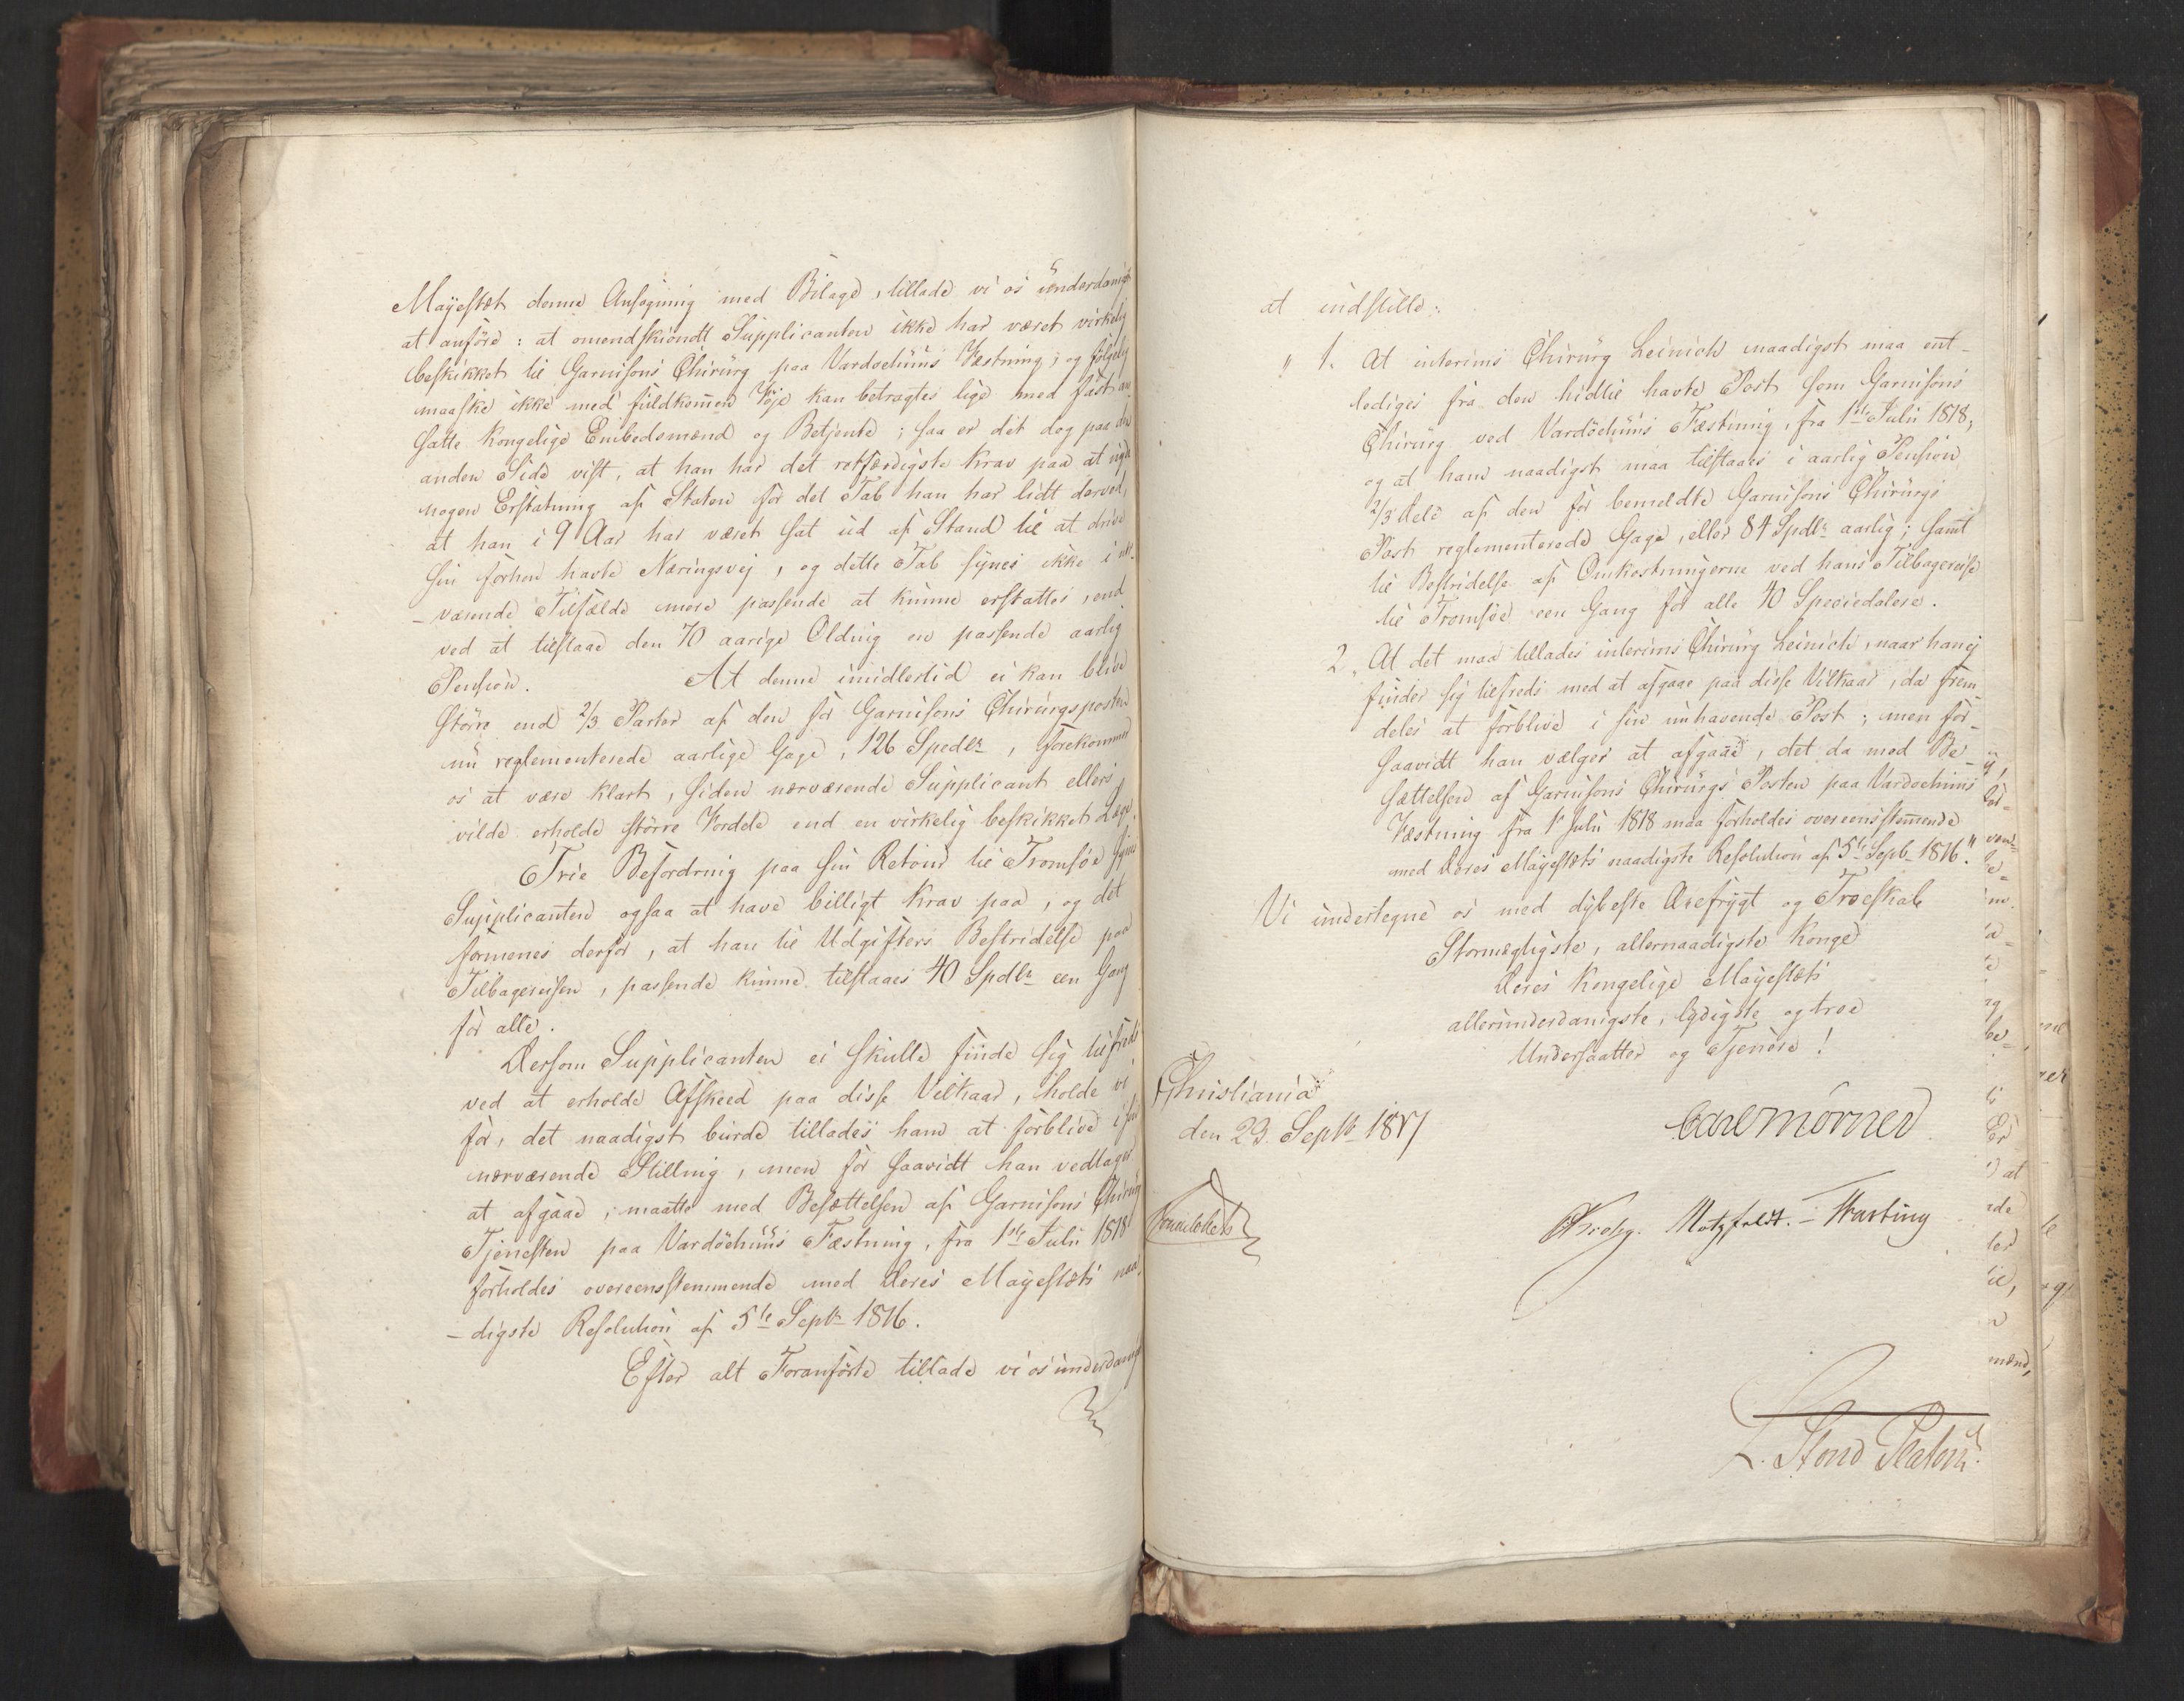 Mayestæt denne Ansøgning med Bilage, tillade vi os underdanigst
at anføre: at omendskiøndt Supplicanten ikke har været virkelig
beskikket til Garnisons Chirurg paa Vardoehuus Fæstning, og følgelig
maaske ikke med fuldkommen Føje kan betragtes lige med fast an¬
satte Kongelige Embedsmænd og Betjente; saa er det dog paa den
anden Side vist, at han har det retfærdigste Krav paa at nyde
nogen Erstatning af Staten for det Tab han har lidt derved,
at han i 9 Aar har været sat ud af Stand til at drive
sin forhen havte Næringsvej, og dette Tab synes ikke i nær¬
-værende Tilfælde mere passende at kunne erstattes, end
ved at tilstaae den 70 aarige Olding en passende aarlig
Pension. At denne imidlertid ei kan blive
større end 2/3 Parter af den for Garnisons Chirurgsposten
nu reglementerede aarlige Gage, 126 Spedlr, forekommer
os at være klart, siden nærværende Supplicant ellers
vilde erholde større Fordele end en virkelig beskikket Læge.
Frie Befordring paa sin Retour til Tromsøe synes
Supplicanten ogsaa at have billigt Krav paa, og det
formenes derfor, at han til Udgifters Bestridelse paa
Tilbagereisen, passende kunne tilstaaes 40 Spdlr een Gang
for alle.
Dersom Supplicanten ei skulle finde sig tilfreds
ved at erholde Afskeed paa disse Vilkaar, holde vi
for, det naadigst burde tillades ham at forblive i sin
nærværende Stilling, men for saavidt han vedtager
at afgaae, maatte med Besættelsen af Garnisons Chirurg
Tjenesten paa Vardöehuus Fæstning, fra 1ste Julii 1818
forholdes overeensstemmende med Deres Mayestæts naa¬
-digste Resolution af 5te Septbr 1816.
Efter alt Foranførte tillade vi os underdanigst
at indstille:
" 1. At interims Chirurg Leinich naadigst maa ent-
lediges fra den hidtil havte Post som Garnisons
Chirurg ved Vardöehuus Fæstning, fra 1ste Julii 1818,
og at ham naadigst maa tilstaaes i aarlig Pension
2/3 Dele af den for bemeldte Garnisons Chirurgs
Post reglementerede Gage, eller 84 Spdlr aarlig; samt
til Bestridelse af Omkostningerne ved hans Tilbagereise
til Tromsøe een Gang for alle 40 Speciedalere.
2. At det maa tillades interims Chirurg Leinich, naar han ej
finder sig tilfreds med at afgaae paa disse Vilkaar, da frem-
deles at forblive i sin nuhavende Post; men for-
saavidt han vælger at afgaae, det da med Be-
sættelsen af Garnisons Chirurgs Posten paa Vardoehuus
Fæstning fra 1 Julii 1818 maa forholdes overeensstemmende
med Deres Mayestæts naadigste Resolution af 5te Septb 1816."
Vi undertegne os med dybeste Ærefrygt og Troeskab
Stormægtigste, allernaadigste Konge
Deres Kongelige Mayestæts
allerunderdanigste, lydigste og troe
Undersaatter og Tjenere!
Christiania
den 23 Septbr 1817
Carl Mörner
Krohg. Motzfeldt. - Fasting
L. Stoud Platou